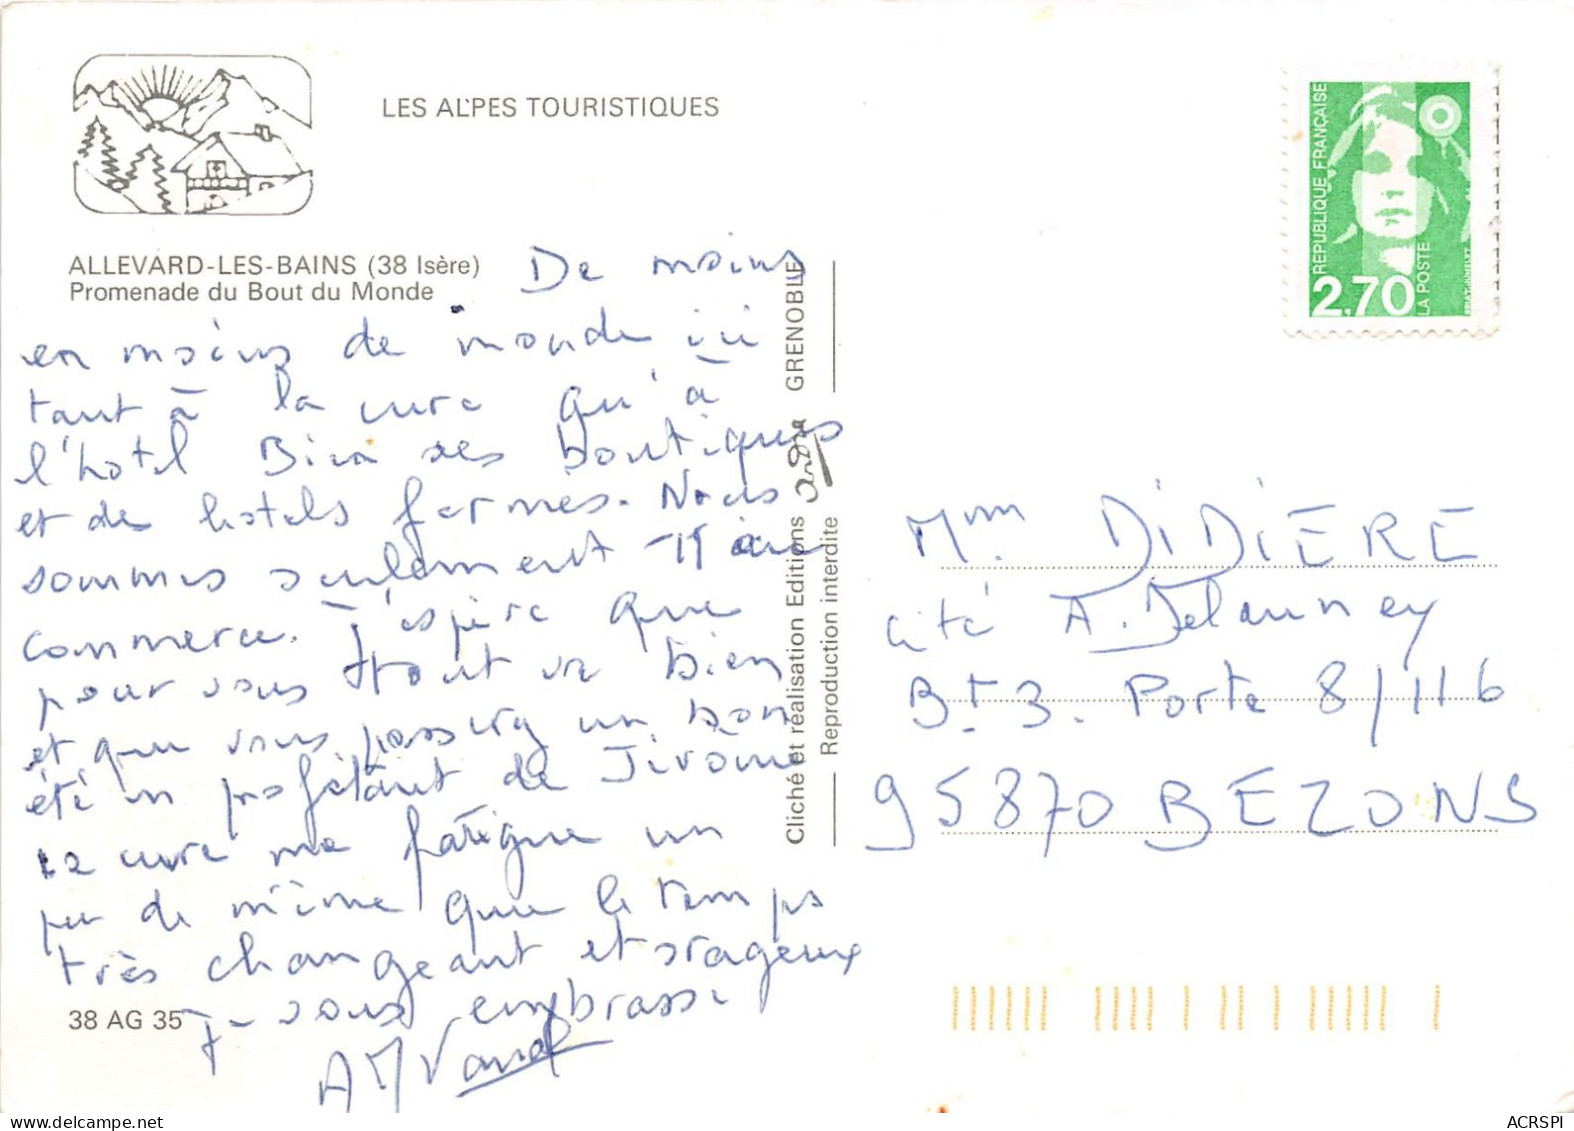 LES ALPES TOURISTIQUES
RÉPUBLIQUE FRANÇAISE
2,70
LA POSTE
ALLEVARD-LES-BAINS (38 Isère)
Promenade du Bout du Monde
De moins
en moins de monde ici
tant à la cure qu'à
l'hotel Bien des boutiques
et des hotels fermés. Nous
sommes seulement
commerce. J'espère que
pour vous tout va bien
et que vous passerez un bon
été en profitant de Jérôme
La cure me fatigue un
peu de même que le temps
très changeant et orageux
Je vous embrasse
38 AG 35
Cliché et réalisation Editions andré GRENOBLE
Reproduction interdite
Mme DIDIERE
cité A. Delaunay
Bt 3. Porte 8/116
95870 BEZONS
ACRSPI